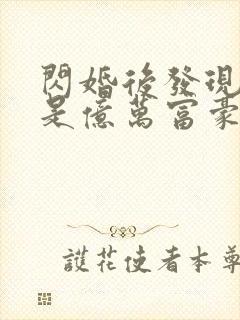 閃婚後發現
是億萬富豪
護花使者本尊